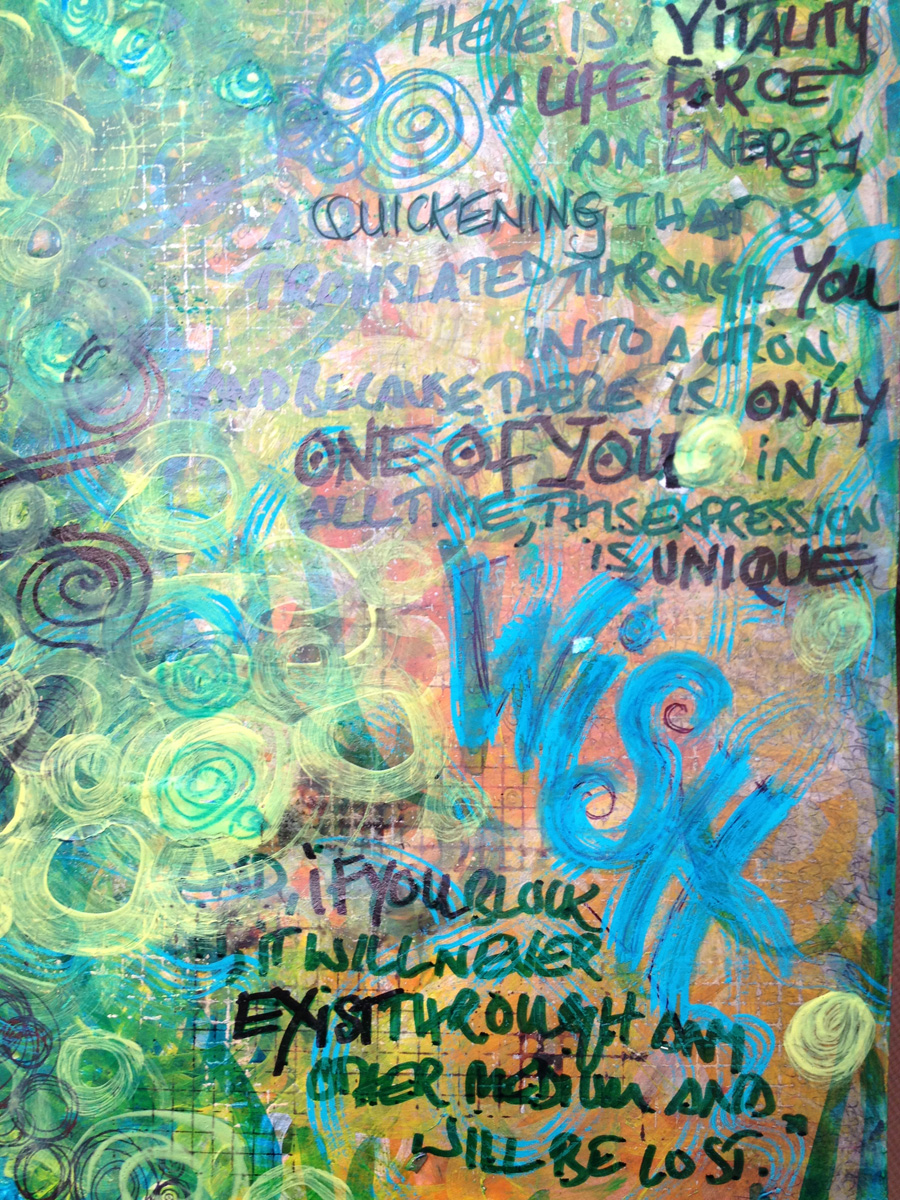 THERE IS A VITALITY
A LIFE FORCE
AN ENERGY
A QUICKENING THAT IS
TRANSLATED THROUGH YOU
INTO ACTION,
AND BECAUSE THERE IS ONLY
ONE OF YOU IN
ALL TIME, THIS EXPRESSION
IS UNIQUE.
RISK
AND, iF YOU BLOCK
IT WILL NEVER
EXIST THROUGH ANY
OTHER MEDIUM AND
WILL BE LOST."